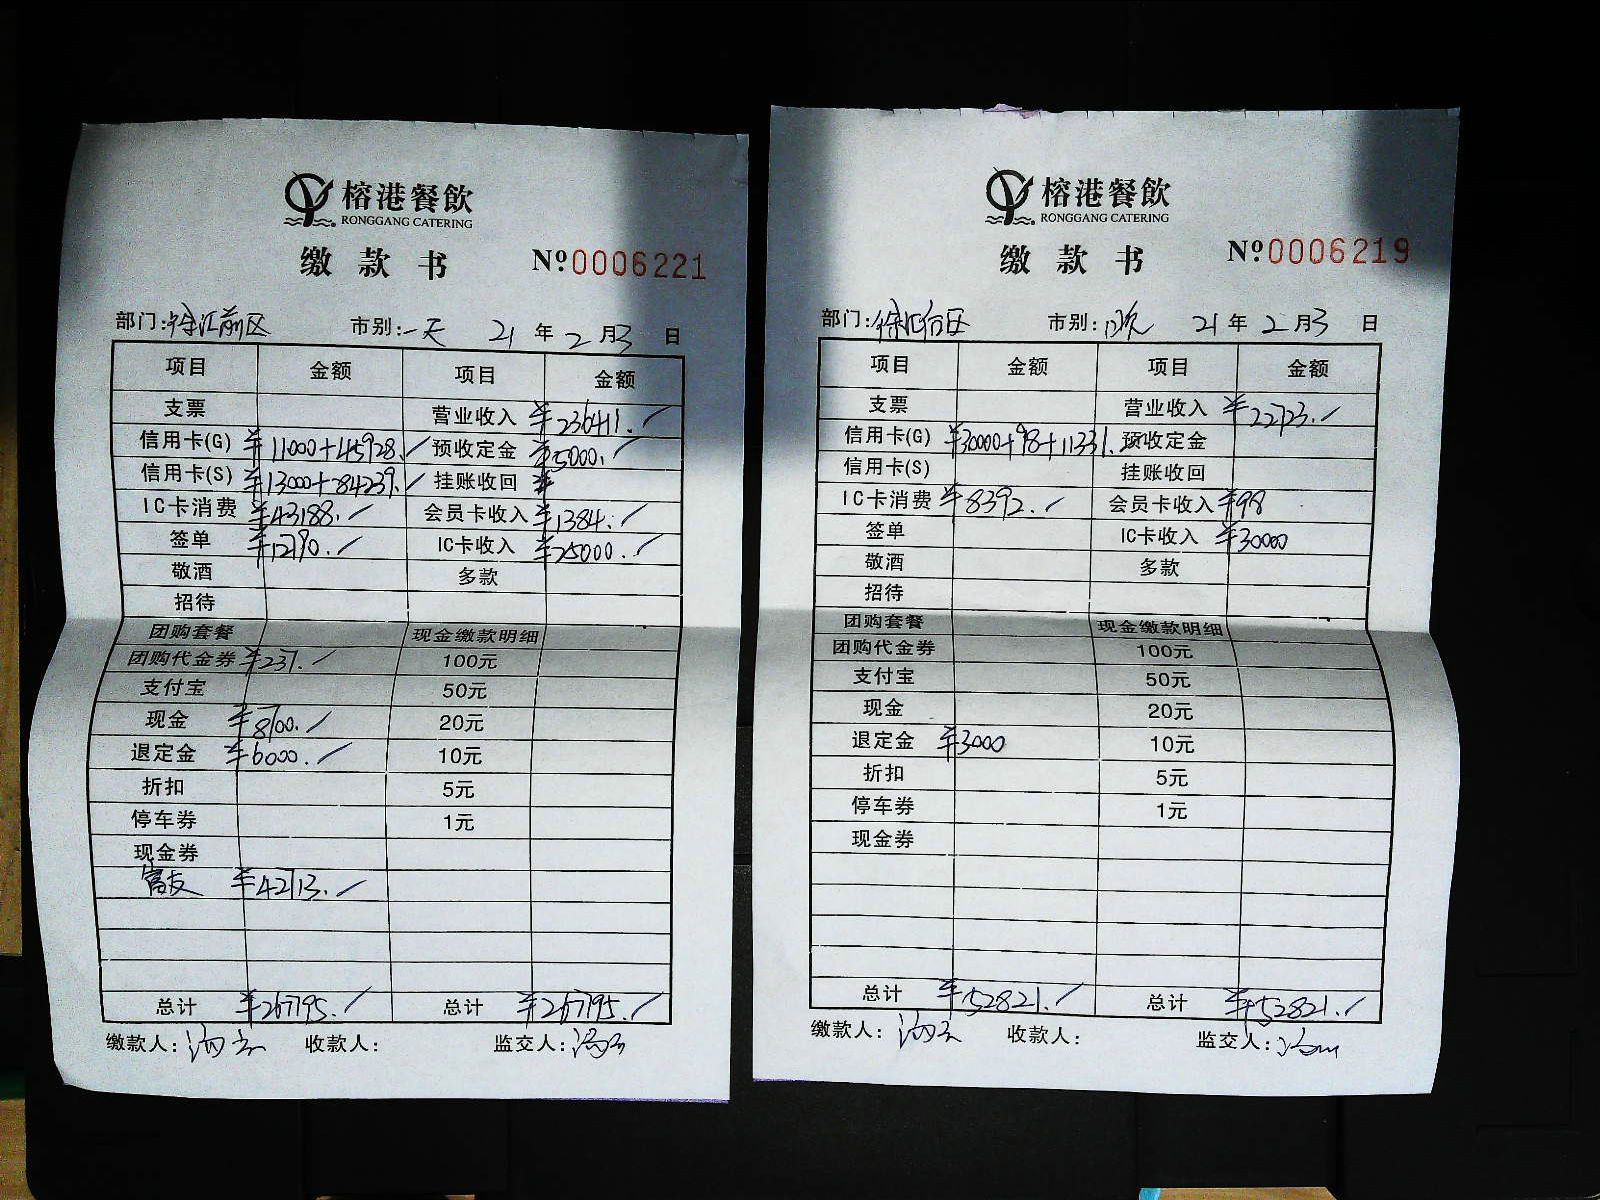 榕港餐飲
RONGGANG CATERING
缴款书 №0006221
部门:徐汇前区 市别:一天 21年2月3日
项目 金额 项目 金额
支票 营业收入 ¥236411.
信用卡(G) ¥11000+45928. 预收定金 ¥5000.
信用卡(S) ¥13000+84239. 挂账收回 ¥
IC卡消费 ¥43188. 会员卡收入 ¥1384.
签单 ¥12790. IC卡收入 ¥25000.
敬酒 多款
招待
团购套餐 现金缴款明细
团购代金券 ¥237. 100元
支付宝 50元
现金 ¥8700. 20元
退定金 ¥6000. 10元
折扣 5元
停车券 1元
现金券
富友 ¥42713.
总计 ¥267795. 总计 ¥267795.
缴款人: 收款人: 监交人:
榕港餐飲
RONGGANG CATERING
缴款书 №0006219
部门:徐汇后区 市别: 21年2月3日
项目 金额 项目 金额
支票 营业收入 ¥22723.
信用卡(G) ¥30000+98+11331. 预收定金
信用卡(S) 挂账收回
IC卡消费 ¥8392. 会员卡收入 ¥98
签单 IC卡收入 ¥30000
敬酒 多款
招待
团购套餐 现金缴款明细
团购代金券 100元
支付宝 50元
现金 20元
退定金 ¥3000 10元
折扣 5元
停车券 1元
现金券
总计 ¥52821. 总计 ¥52821.
缴款人: 收款人: 监交人: